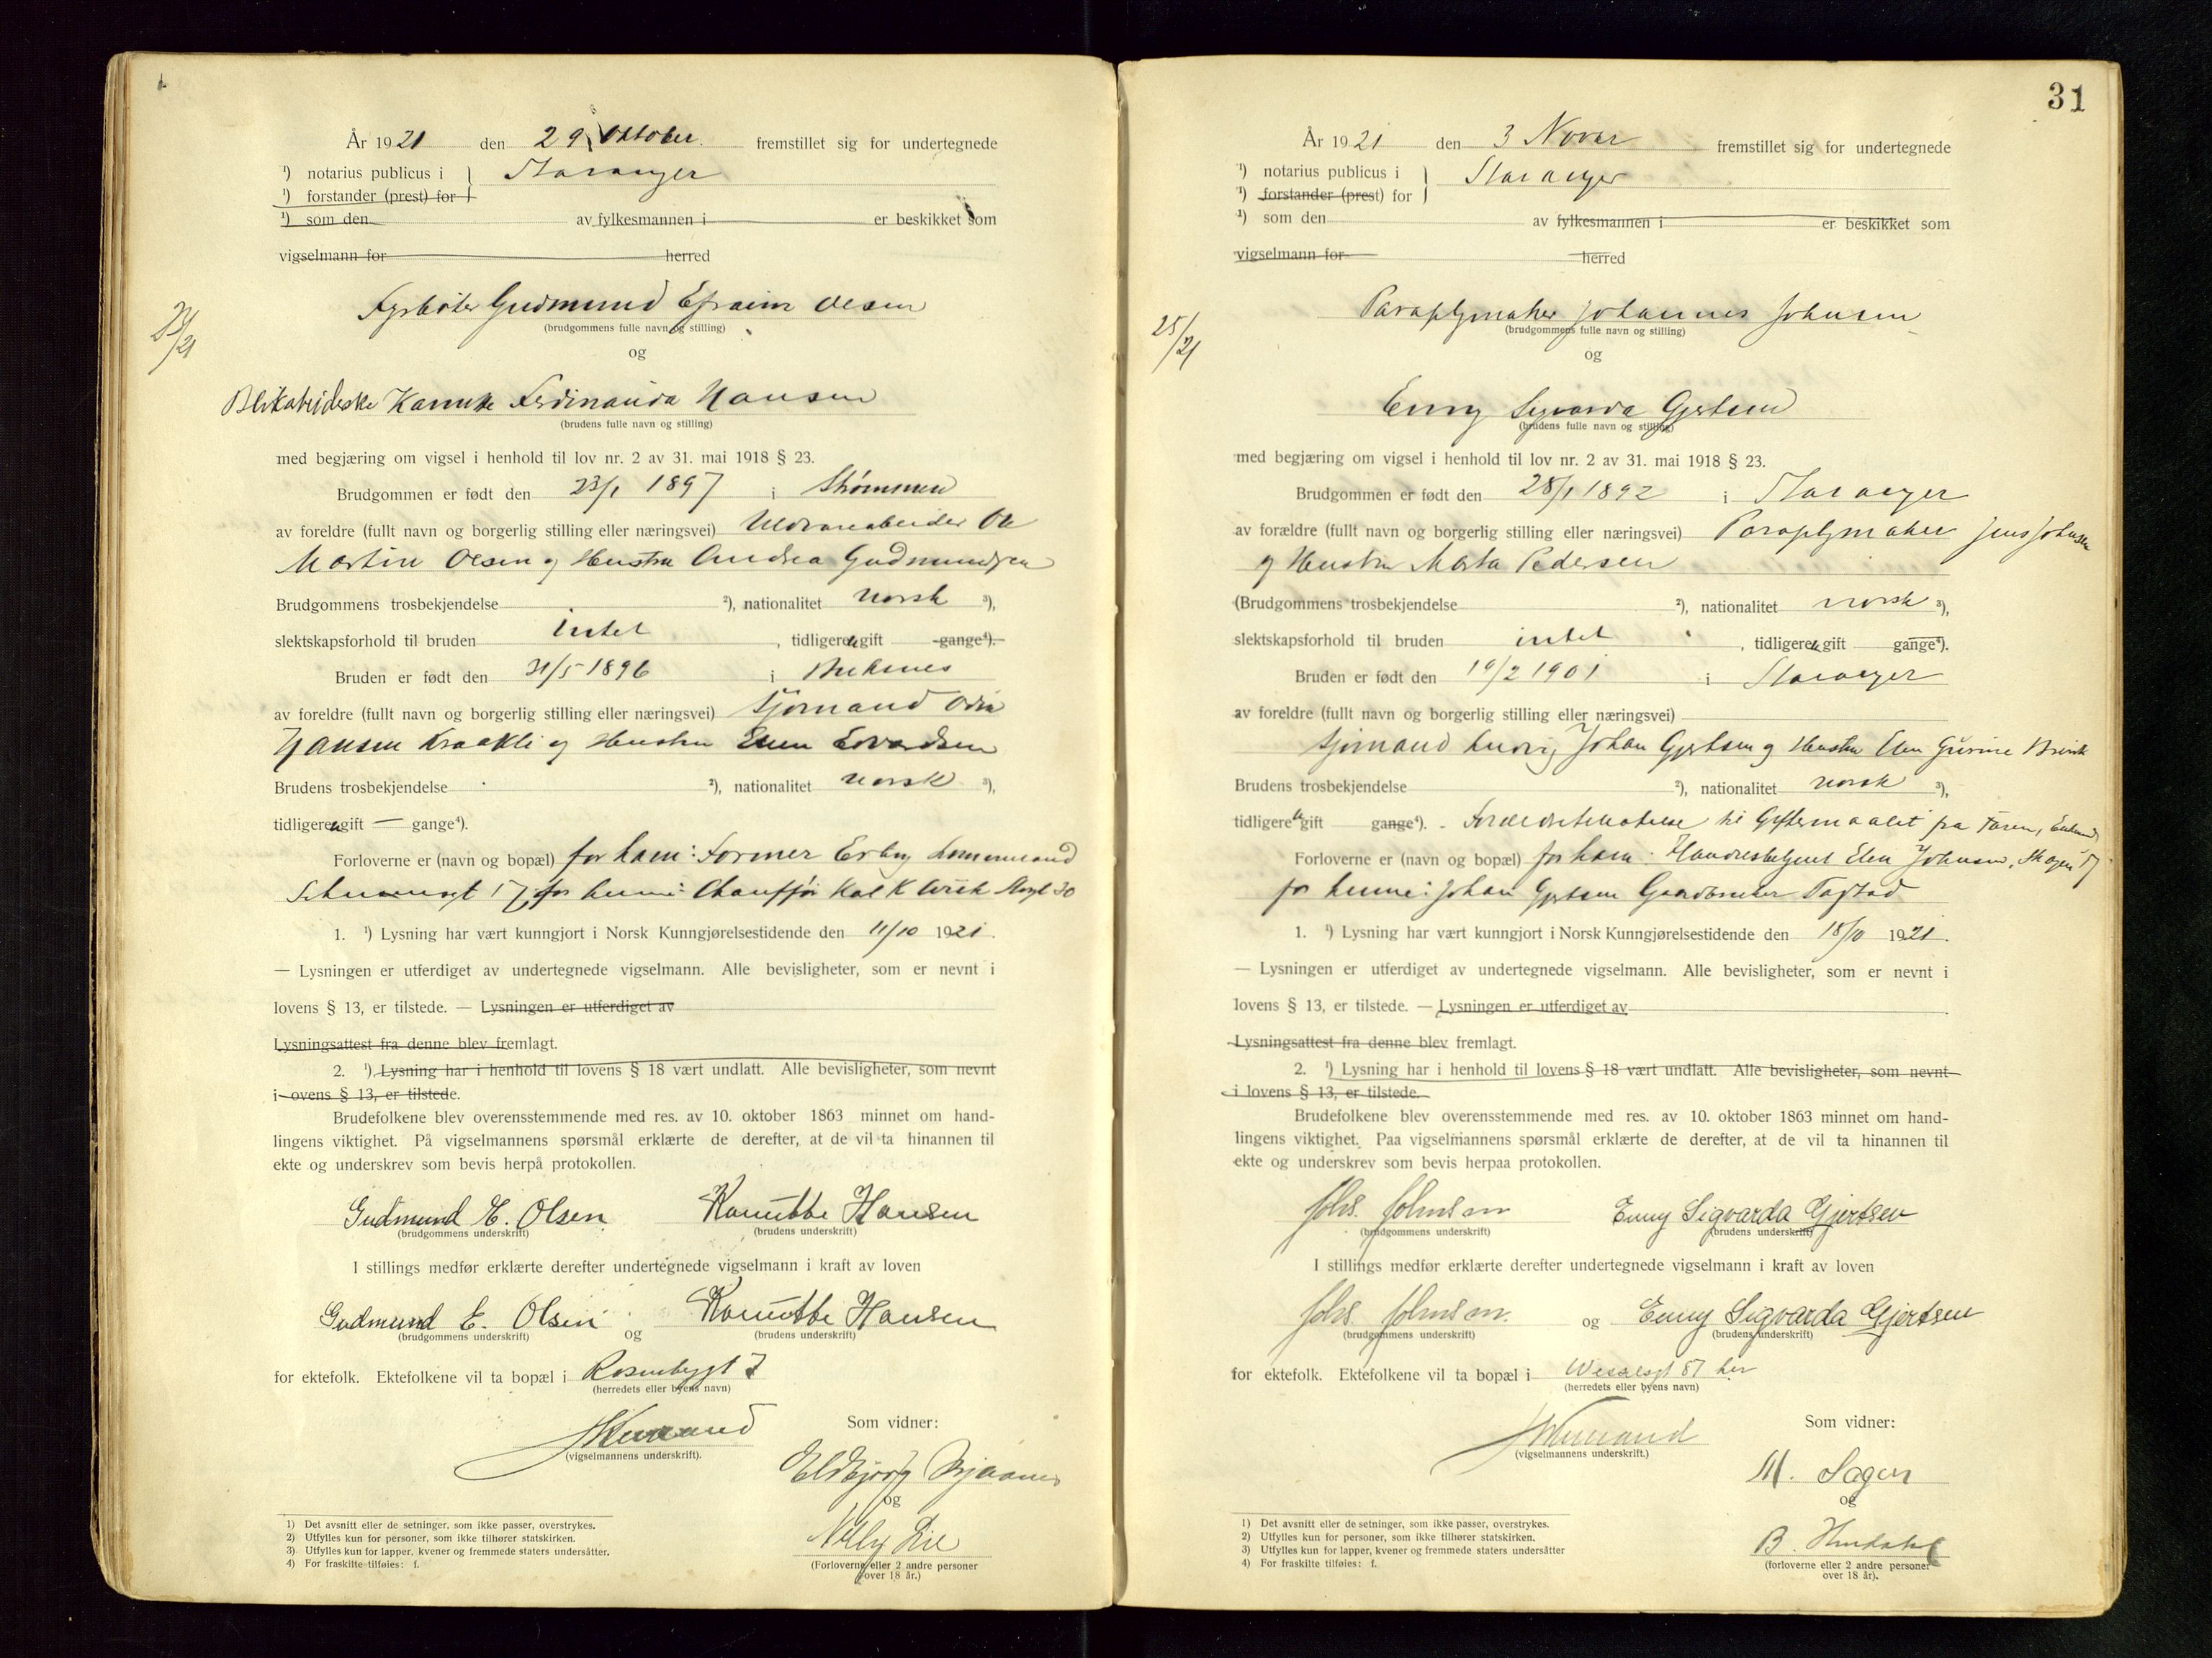 År 1921 den 29 Oktober. fremstillet sig for undertegnede
¹) notarius publicus i } Stavanger
¹) forstander (prest) for
¹) som den av fylkesmannen i er beskikket som
vigselmann for herred
Fyrbøter Gudmund Efraim Olsen
(brudgommens fulle navn og stilling)
og
/21
Blikarbeiderske Kanutte Ferdinanda Hansen
(brudens fulle navn og stilling)
med begjæring om vigsel i henhold til lov nr. 2 av 31. mai 1918 § 23.
Brudgommen er født den 23/1 1897 i Strømmen
av foreldre (fullt navn og borgerlig stilling eller næringsvei) Uldvarearbeider Ole
Martin Olsen og Hustru Andrea Gudmundsen
Brudgommens trosbekjendelse ²), nationalitet norsk ³),
slektskapsforhold til bruden intet , tidligere ei gift gange⁴).
Bruden er født den 31/5 1896 i Buksnes
av foreldre (fullt navn og borgerlig stilling eller næringsvei) Sjømand Odin
Hansen Kraakli og Hustru Edvardsen
Brudens trosbekjendelse ²), nationalitet norsk ³),
tidligere ei gift — gange⁴).
Forloverne er (navn og bopæl) for ham: Former Erling
17, for henne: Chauffør K 30
1. ¹) Lysning har vært kunngjort i Norsk Kunngjørelsestidende den 11/10 1921.
— Lysningen er utferdiget av undertegnede vigselmann. Alle bevisligheter, som er nevnt i
lovens § 13, er tilstede. — Lysningen er utferdiget av
Lysningsattest fra denne blev fremlagt.
2. ¹) Lysning har i henhold til lovens § 18 vært undlatt. Alle bevisligheter, som nevnt
i ovens § 13, er tilstede.
Brudefolkene blev overensstemmende med res. av 10. oktober 1863 minnet om hand-
lingens viktighet. På vigselmannens spørsmål erklærte de derefter, at de vil ta hinannen til
ekte og underskrev som bevis herpå protokollen.
Gudmund E. Olsen Kanutte Hansen
(brudgommens underskrift) (brudens underskrift)
I stillings medfør erklærte derefter undertegnede vigselmann i kraft av loven
Gudmund E. Olsen og Kanutte Hansen
(brudgommens underskrift) (brudens underskrift)
for ektefolk. Ektefolkene vil ta bopæl i Rosenbggt 7
(herredets eller byens navn)
Som vidner:
(vigselmannens underskrift).
Eldbjørg
og
Nelly Lie
(Forloverne eller 2 andre personer
over 18 år.)
1) Det avsnitt eller de setninger, som ikke passer, overstrykes.
2) Utfylles kun for personer, som ikke tilhører statskirken.
3) Utfylles kun for lapper, kvener og fremmede staters undersåtter.
4) For fraskilte tilføies: f.
31
År 1921 den 3 Novbr fremstillet sig for undertegnede
¹) notarius publicus i } Stavanger
¹) forstander (prest) for
¹) som den av fylkesmannen i er beskikket som
vigselmann for herred
Paraplymaker Johannes Johnsen
(brudgommens fulle navn og stilling)
25/21
og
Enny Sigvarda Gjertsen
(brudens fulle navn og stilling)
med begjæring om vigsel i henhold til lov nr. 2 av 31. mai 1918 § 23.
Brudgommen er født den 28/1 1892 i Stavanger
av forældre (fullt navn og borgerlig stilling eller næringsvei) Paraplymaker Jens Johnsen
og Hustru Marta Pedersen
(Brudgommens trosbekjendelse ²), nationalitet norsk ³),
slektskapsforhold til bruden intet , tidligere ei gift gange⁴).
Bruden er født den 19/2 1901 i Stavanger
av foreldre (fullt navn og borgerlig stilling eller næringsvei)
Sjømand Ludvig Johan Gjertsen og Hustru Elen Gurine
Brudens trosbekjendelse ²), nationalitet norsk ³),
tidligere ei gift gange⁴). til Giftermaalet fra Faren,
Forloverne er (navn og bopæl) for ham: Handelsbetjent Johnsen, Skagen 17
for henne: Johan Gjertsen Gaardbruker
1. ¹) Lysning har vært kunngjort i Norsk Kunngjørelsestidende den 18/10 1921.
— Lysningen er utferdiget av undertegnede vigselmann. Alle bevisligheter, som er nevnt i
lovens § 13, er tilstede. — Lysningen er utferdiget av
Lysningsattest fra denne blev fremlagt.
2. ¹) Lysning har i henhold til lovens § 18 vært undlatt. Alle bevisligheter, som nevnt
i lovens § 13, er tilstede.
Brudefolkene blev overensstemmende med res. av 10. oktober 1863 minnet om hand-
lingens viktighet. Paa vigselmannens spørsmål erklærte de derefter, at de vil ta hinannen til
ekte og underskrev som bevis herpaa protokollen.
Johs. Johnsen Enny Sigvarda Gjertsen
(brudgommens underskrift) (brudens underskrift)
I stillings medfør erklærte derefter undertegnede vigselmann i kraft av loven
Johs. Johnsen. og Enny Sigvarda Gjertsen
(brudgommens underskrift) (brudens underskrift)
for ektefolk. Ektefolkene vil ta bopæl i Wesselsgt 87 her
(herredets eller byens navn)
Som vidner:
(vigselmannens underskrift.)
M. Sagen
og
B.
(forloverne eller 2 andre personer
over 18 år).
1) Det avsnitt eller de setninger, som ikke passer, overstrykes.
2) Utfylles kun for personer, som ikke tilhører statskirken.
3) Utfylles kun for lapper, kvener og fremmede staters undersåtter
4) For fraskilte tilføies: f.